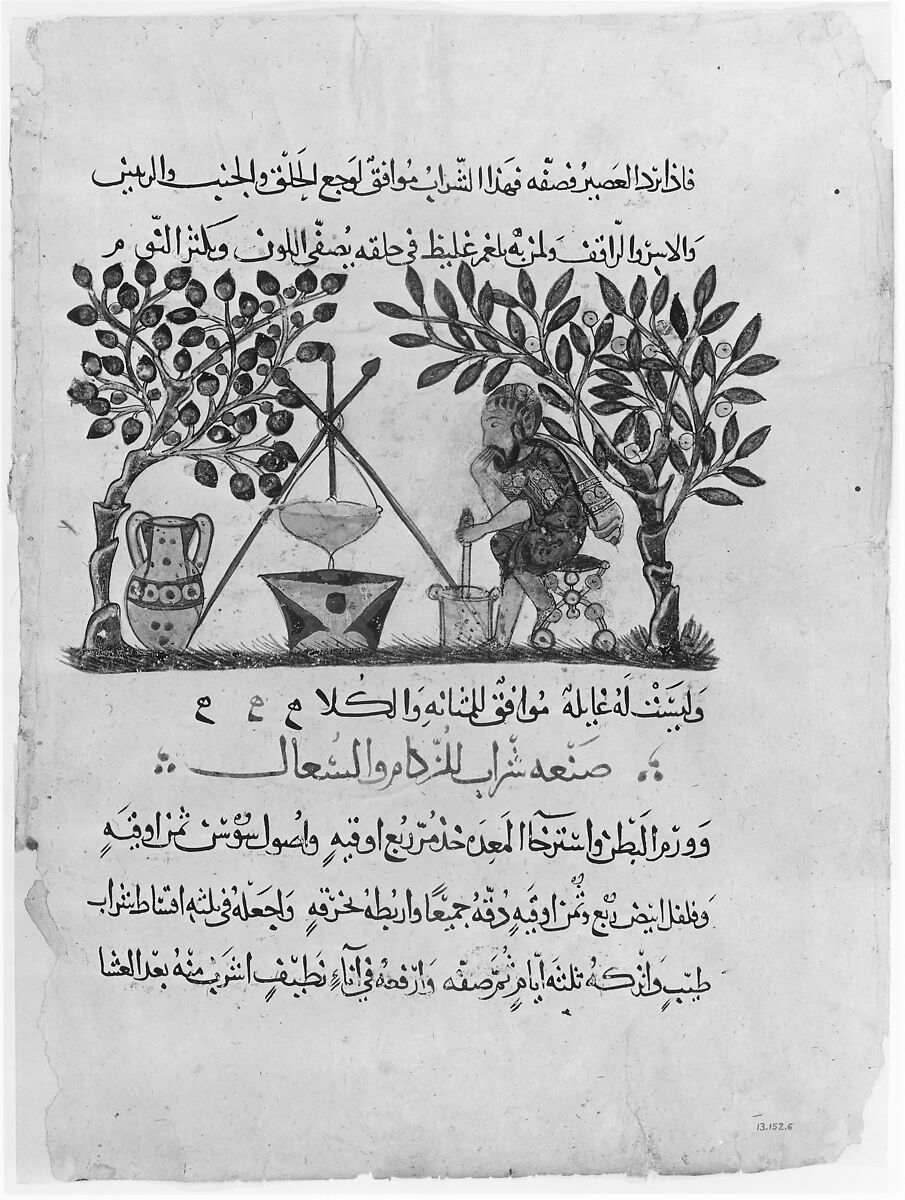 فاذا برد العصير فصفه فهذا الشراب موافق لوجع الحلق والجنب والرئتين
ولمن به بلغم غليظ في حلقه يصفى اللون ويكثر النوم
وليست له غايله موافق للمثانه والكلا
صنعه شراب للزكام والسعال
وورم البطن واسترخا المعده خذ مر ربع اوقيه واصول سوسن ثمن اوقيه
وفلفل ابيض ربع وثمن اوقيه دقه جميعا واربطه بخرقه واجعله في ثلثه اقساط شراب
طيب واتركه ثلثه ايام ثم صفه وارفعه في اناء نظيف اشرب منه بعد العشا
13.152.6